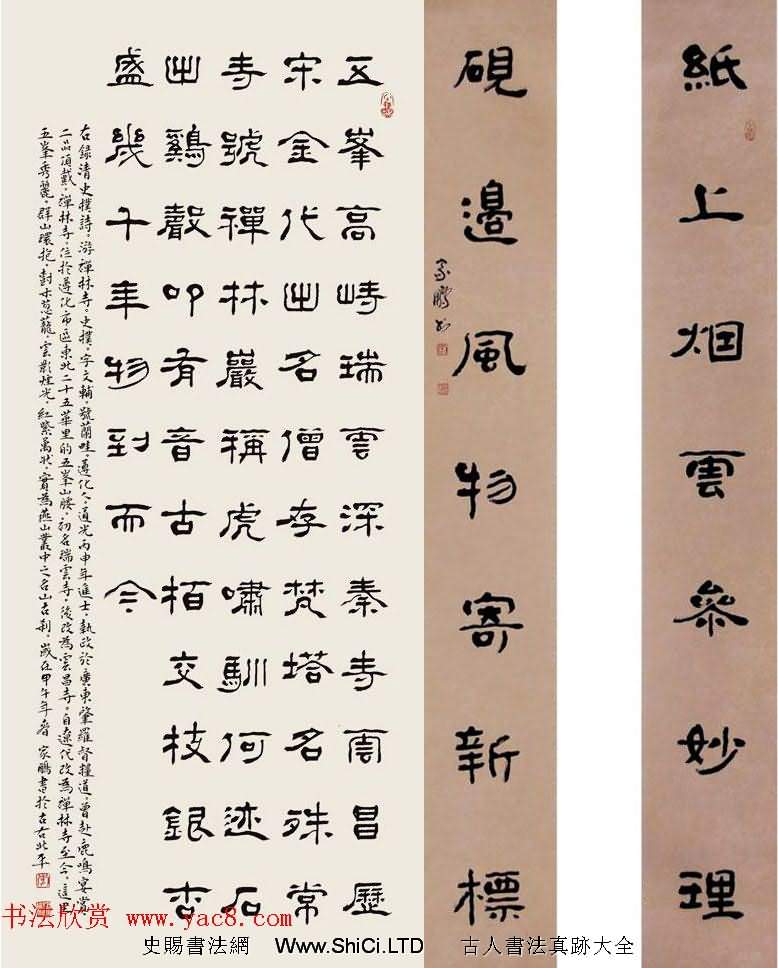 紙上烟雲參妙理
硯邊風物寄新標
家鵬書
五峯高峙瑞雲深秦寺雲昌歷
宋金代出名僧存梵塔名殊常
寺號禪林嚴稱虎嘯馴何迹石
出鷄聲叩有音古栢交枝銀杏
盛幾千年物到而今
右録清史樸詩。游禪林寺。史樸，字文輔，號蘭畦，遵化人，道光丙申年進士，執政於廣東肇羅督糧道，曾赴鹿鳴宴賞
二品頂戴。禪林寺，位於遵化市區東北二十五華里的五峯山腰，初名瑞雲寺，後改為雲昌寺。自遼代改為禪林寺至今。這里
五峯秀麗，群山環抱，樹木蔥蘢，雲影光，紅紫萬狀，實為燕山叢中之名山古刹。歲在甲午年春 家鵬書於古右北平
书法欣赏 www.yac8.com
史賜書法網 Www.ShiCi.LTD 古人書法真跡大全